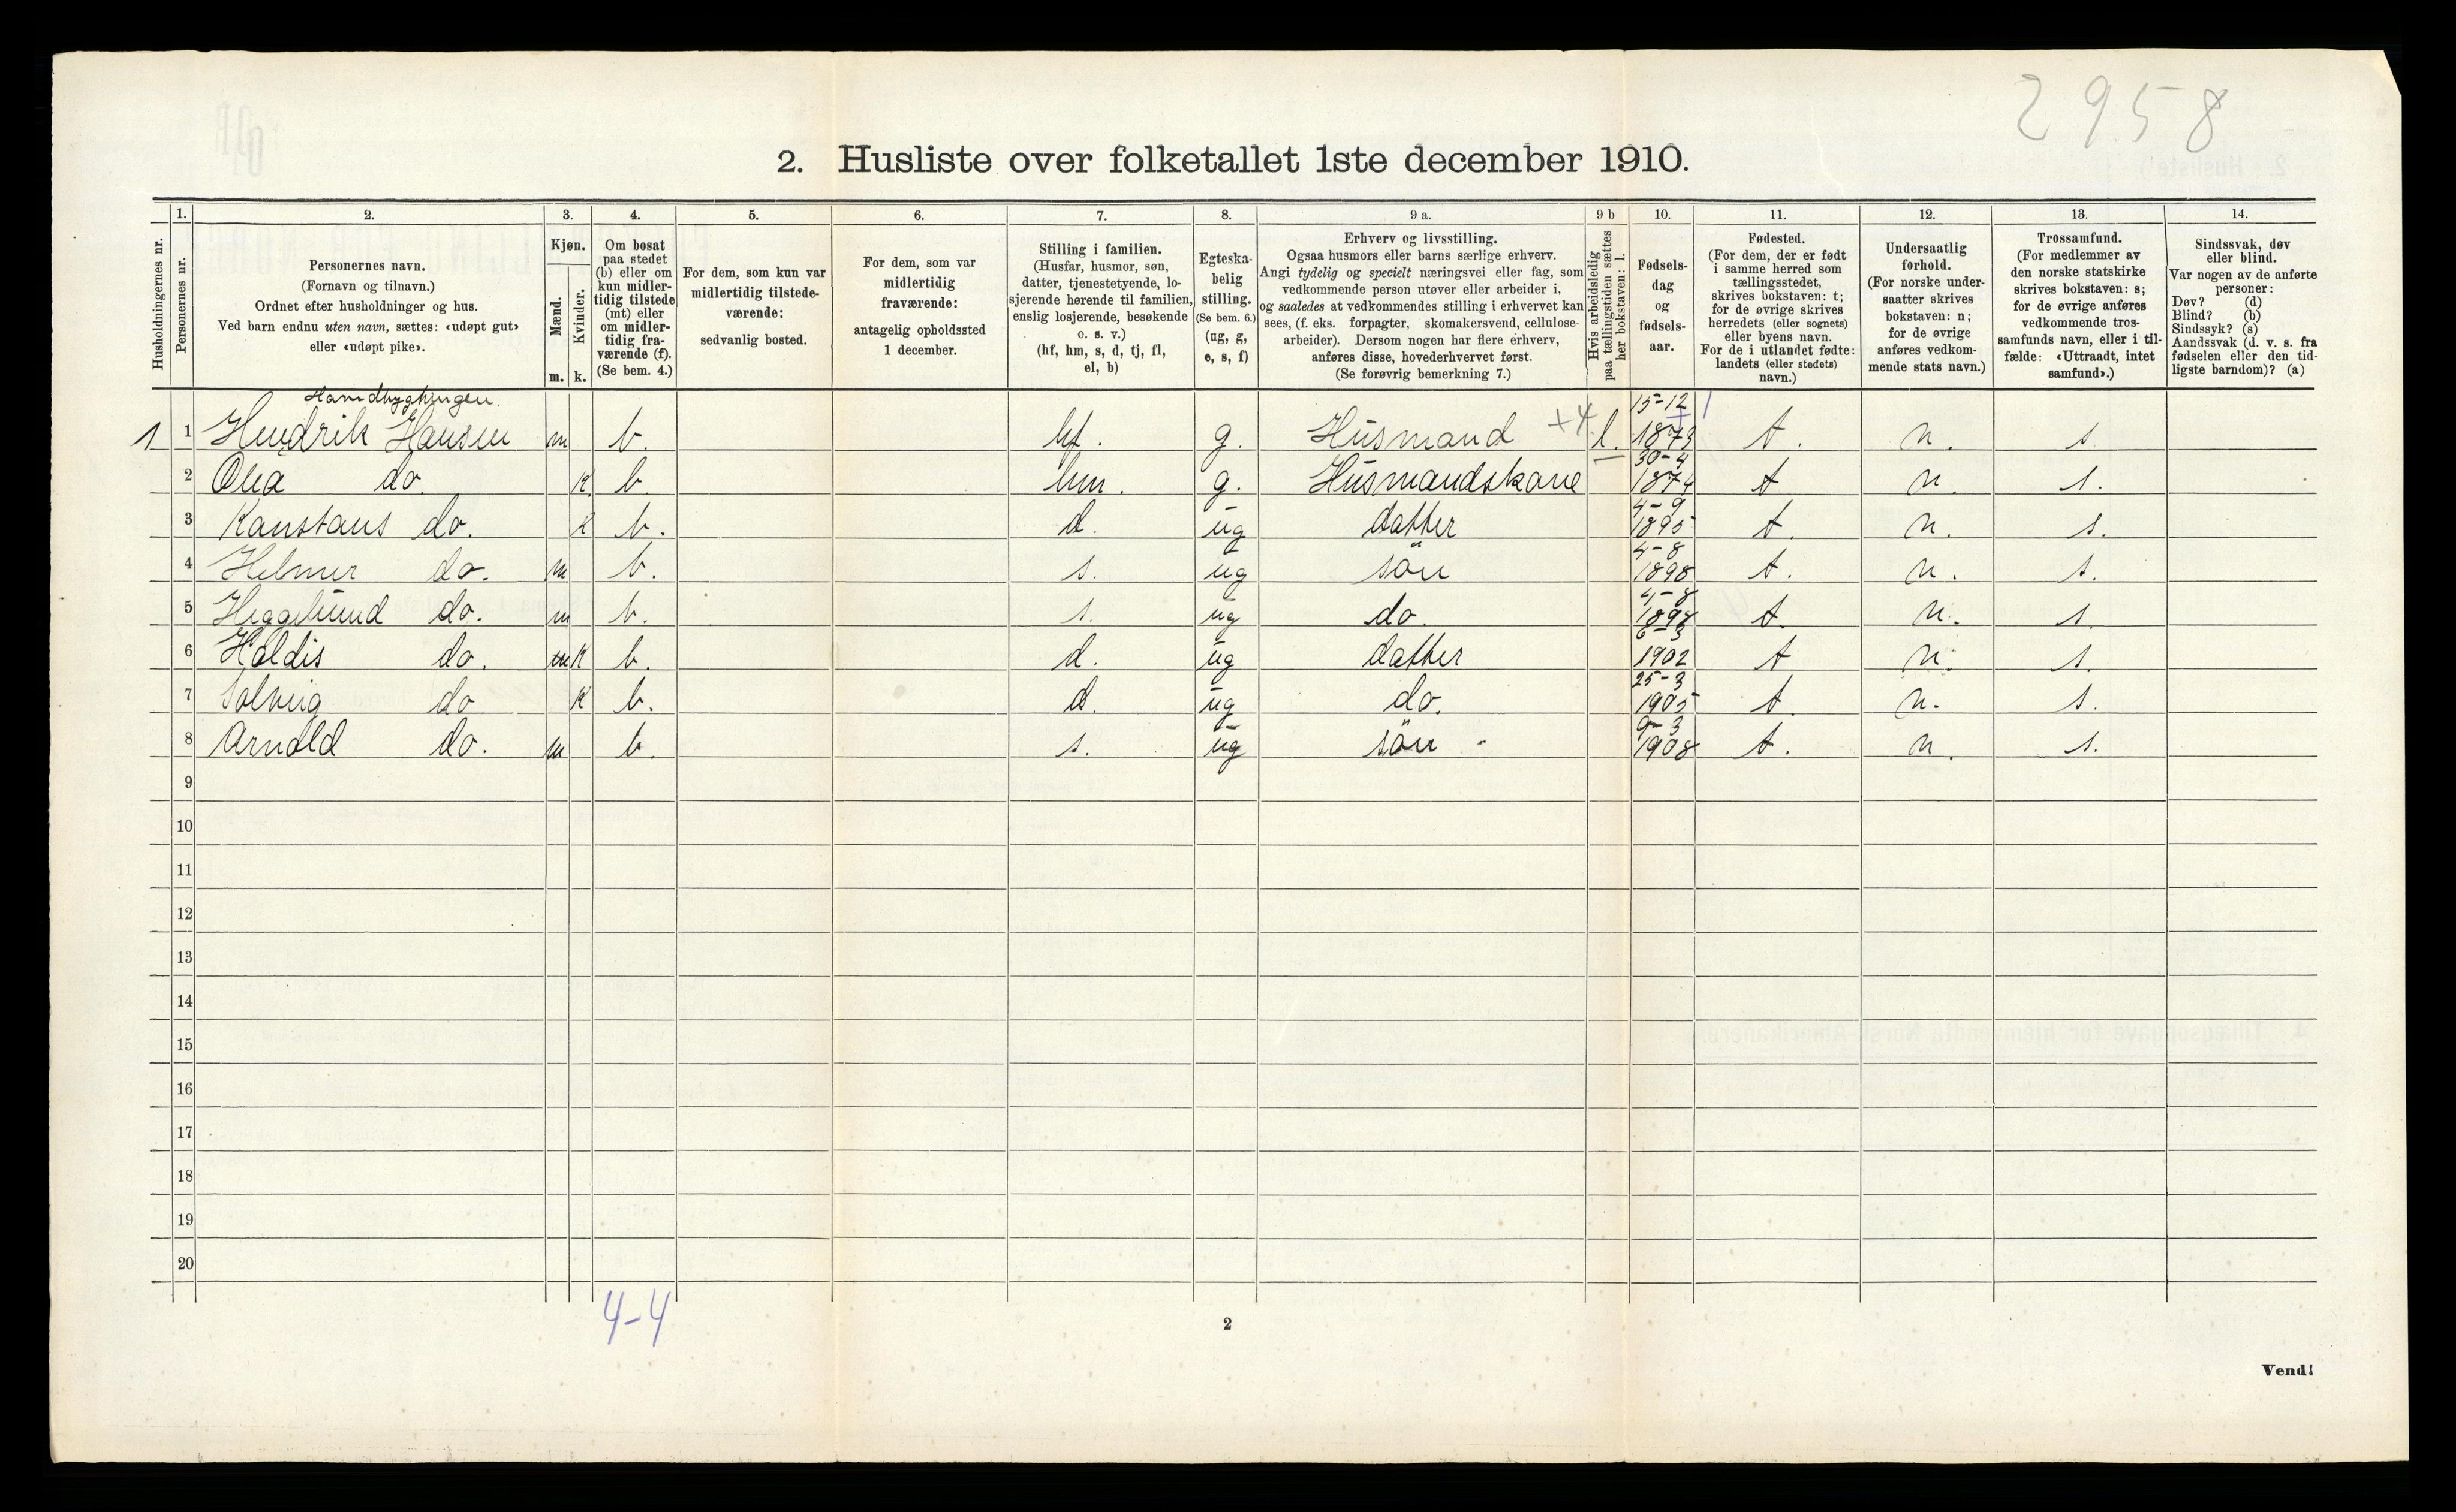 2958
2. Husliste over folketallet 1ste december 1910.
Husholdningernes nr.
1.
Personernes nr.
2.
Personernes navn.
(Fornavn og tilnavn.)
Ordnet efter husholdninger og hus.
Ved barn endnu uten navn, sættes: «udøpt gut»
eller «udøpt pike».
3.
Kjøn.
Mænd.
Kvinder.
m. k.
4.
Om bosat
paa stedet
(b) eller om
kun midler-
tidig tilstede
(mt) eller
om midler-
tidig fra-
værende (f).
(Se bem. 4.)
5.
For dem, som kun var
midlertidig tilstede-
værende:
sedvanlig bosted.
6.
For dem, som var
midlertidig
fraværende:
antagelig opholdssted
1 december.
7.
Stilling i familien.
(Husfar, husmor, søn,
datter, tjenestetyende, lo-
sjerende hørende til familien,
enslig losjerende, besøkende
o. s. v.)
(hf, hm, s, d, tj, fl,
el, b)
8.
Egteska-
belig
stilling.
(Se bem. 6.)
(ug, g,
e, s, f)
9 a.
Erhverv og livsstilling.
Ogsaa husmors eller barns særlige erhverv.
Angi tydelig og specielt næringsvei eller fag, som
vedkommende person utøver eller arbeider i,
og saaledes at vedkommendes stilling i erhvervet kan
sees, (f. eks. forpagter, skomakersvend, cellulose-
arbeider). Dersom nogen har flere erhverv,
anføres disse, hovederhvervet først.
(Se forøvrig bemerkning 7.)
9 b
Hvis arbeidsledig
paa tællingstiden sættes
her bokstaven: l.
10.
Fødsels-
dag
og
fødsels-
aar.
11.
Fødested.
(For dem, der er født
i samme herred som
tællingsstedet,
skrives bokstaven: t;
for de øvrige skrives
herredets (eller sognets)
eller byens navn.
For de i utlandet fødte:
landets (eller stedets)
navn.)
12.
Undersaatlig
forhold.
(For norske under-
saatter skrives
bokstaven: n;
for de øvrige
anføres vedkom-
mende stats navn.)
13.
Trossamfund.
(For medlemmer av
den norske statskirke
skrives bokstaven: s;
for de øvrige anføres
vedkommende tros-
samfunds navn, eller i til-
fælde: «Uttraadt, intet
samfund».)
14.
Sindssvak, døv
eller blind.
Var nogen av de anførte
personer:
Døv? (d)
Blind? (b)
Sindssyk? (s)
Aandssvak (d. v. s. fra
fødselen eller den tid-
ligste barndom)? (a)
1 1 Hendrik Hansen m b. hf. g. Husmand +4 l. 15-12 1873 t. n. s.
2 Olea do. k. b. hm. g. Husmandskone 30-4 1874 t n. s.
3 Konstans do. k b. d. ug datter 4-9 1895 t. n. s.
4 Helmer do. m b. s. ug sön 4-8 1898 t. n. s.
5 do. m b. s. ug do. 4-8 1898 t. n. s.
6 Haldis do. m k b. d. ug datter 6-3 1902 t n. s.
7 Solveig do k b. d. ug do. 25-3 1905 t. n. s.
8 Arnold do. m b. s. ug sön 9-3 1908 t. n. s.
9
10
11
12
13
14
15
16
17
18
19
20
4-4
2
Vend!